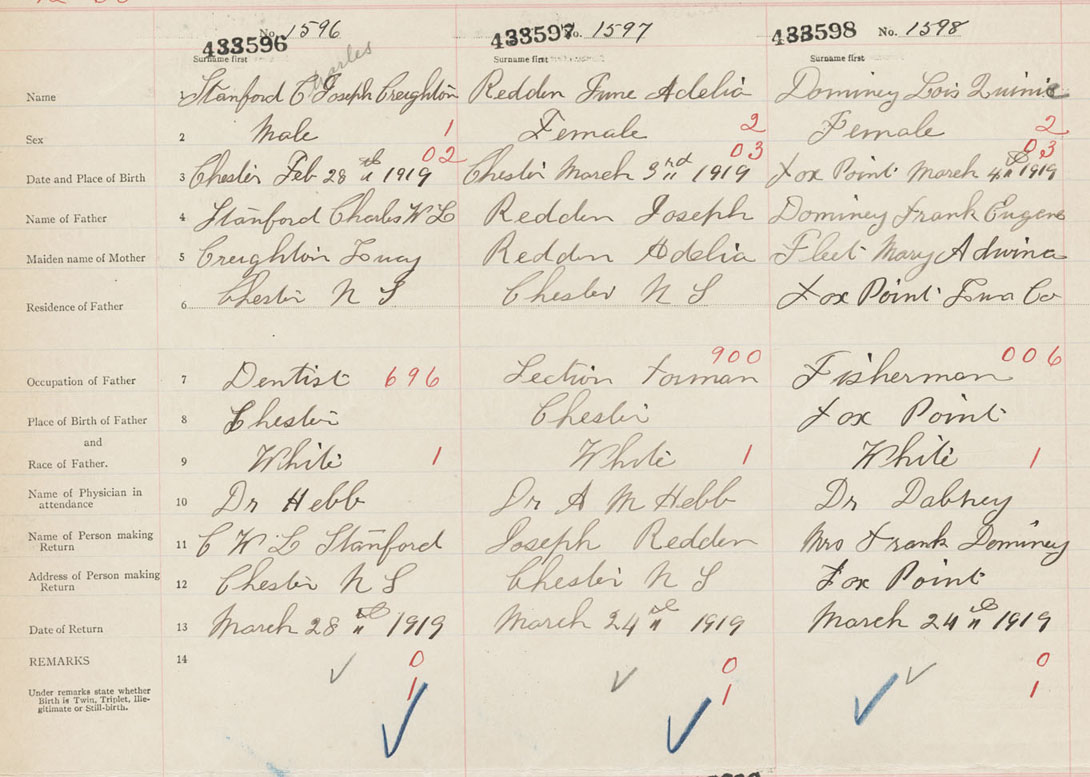 No. 1596 No. 1597 No. 1598
433596 433597 433598
Surname first Surname first Surname first
Charles
Name 1 Stanford C Joseph Creighton Redden June Adelia Dominey Lois
Sex 2 Male 1 Female 2 Female 2
02 03 03
Date and Place of Birth 3 Chester Feb 28th 1919 Chester March 3rd 1919 Fox Point March 4th 1919
Name of Father 4 Stanford Charles W L Redden Joseph Dominey Frank Eugene
Maiden name of Mother 5 Creighton Lucy Redden Adelia Fleet Mary Adwina
Residence of Father 6 Chester N S Chester N S Fox Point Lun Co
900 006
Occupation of Father 7 Dentist 696 Section Forman Fisherman
Place of Birth of Father 8 Chester Chester Fox Point
and
Race of Father. 9 White 1 White 1 White 1
Name of Physician in
attendance 10 Dr Hebb Dr A M Hebb Dr Dabney
Name of Person making
Return 11 C W L Stanford Joseph Redden Mrs Frank Dominey
Address of Person making
Return 12 Chester N S Chester N S Fox Point
Date of Return 13 March 28th 1919 March 24th 1919 March 24th 1919
REMARKS 14 0 0 0
Under remarks state whether
Birth is Twin, Triplet, Ille-
gitimate or Still-birth. 1 1 1